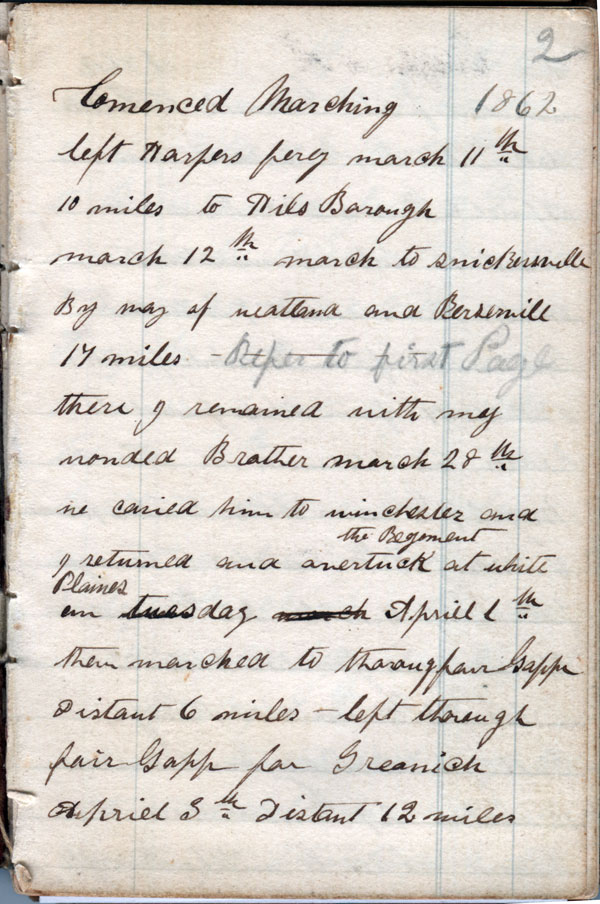 2
Comenced Marching 1862
left Harpers ferry march 11th
10 miles to Hils Borough
march 12th march to snickersville
By way of weatland and Berserville
17 miles - Refer to first Page
there I remained with my
wonded Brother march 28th
we caried him to winchester and
the Regement
I returned and overtuck at white
Plaines
on tuesday march Aprill 1th
then marched to thorougfair Gapp
Distant 6 miles - left thorough
fair Gapp for Greanich
Aprill 3th Distant 12 miles